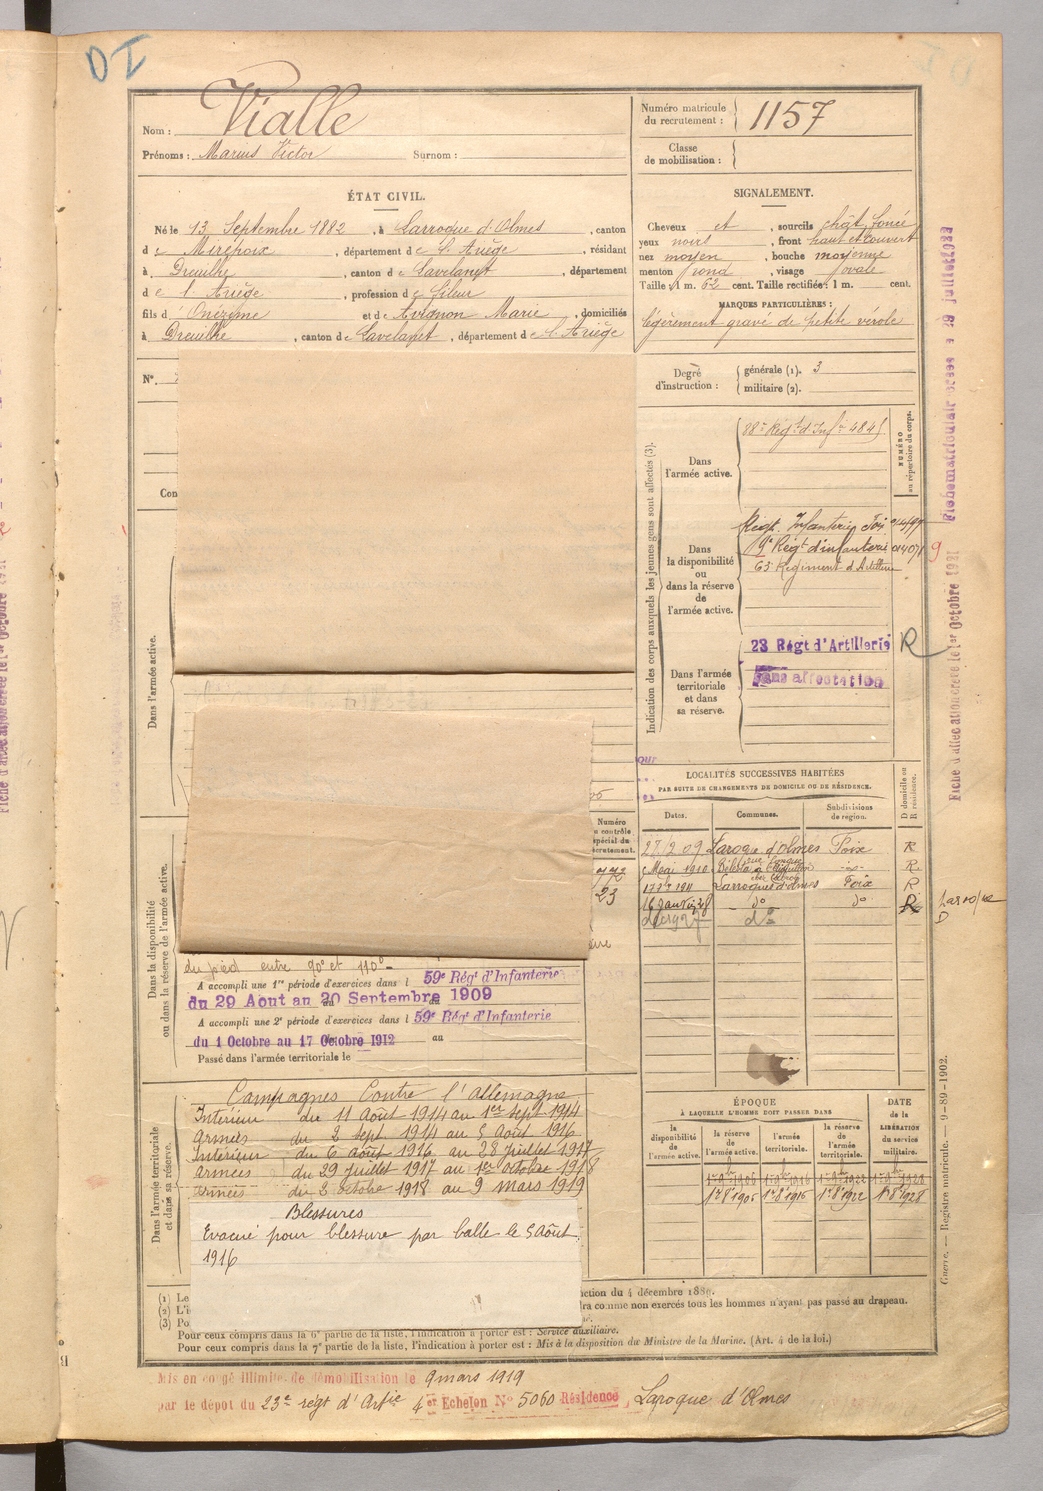 Nom : Vialle
Prénoms : Marius Victor Surnom :
Numéro matricule du recrutement : 1157
Classe de mobilisation :
ÉTAT CIVIL.
Né le 13 Septembre 1882, à Larroque d'Olmes, canton
de Mirepoix, département de l'Ariège, résidant
à Dreuilhe, canton de Lavelanet, département
de l'Ariège, profession de fileur
fils d' Onézime et de Avignon Marie, domiciliés
à Dreuilhe, canton de Lavelanet, département de l'Ariège
SIGNALEMENT.
Cheveux et, sourcils chât. foncé
yeux noirs, front haut et couvert
nez moyen, bouche moyenne
menton rond, visage ovale
Taille : 1 m. 62 cent. Taille rectifiée : 1 m. cent.
MARQUES PARTICULIÈRES :
légèrement gravé de petite vérole
N°.
Degré d'instruction :
générale (1). 3
militaire (2).
Con
Indication des corps auxquels les jeunes gens sont affectés (3).
NUMÉRO au répertoire du corps.
Dans l'armée active.
Dans la disponibilité ou dans la réserve de l'armée active.
Régt. Infanterie Foix
Régt d'infanterie
63 Régiment d'Artillerie
Dans l'armée territoriale et dans sa réserve.
23 Régt d'Artillerie R
Sans affectation
Dans l'armée active.
LOCALITÉS SUCCESSIVES HABITÉES
PAR SUITE DE CHANGEMENTS DE DOMICILE OU DE RÉSIDENCE.
Dates. Communes. Subdivisions de région. D domicile ou R résidence.
27/2 09 Laroque d'Olmes Foix R
Mai 1910 R
1911 Larroque d'Olmes Foix R
16 Janv d° d°
d°
Numéro
23
Dans la disponibilité ou dans la réserve de l'armée active.
du pied entre 90° et 110°
A accompli une 1re période d'exercices dans l 59e Régt d'Infanterie
du 29 Aout au 20 Septembre 1909
A accompli une 2e période d'exercices dans l 59e Régt d'Infanterie
du 1 Octobre au 17 Octobre 1912 au
Passé dans l'armée territoriale le
Dans l'armée territoriale et dans sa réserve.
Campagnes Contre l'allemagne
Intérieur du 11 Août 1914 au 1er Sept 1914
armées du 2 sept 1914 au 5 Août 1916
Intérieur du 6 août 1916 au 28 juillet 1917
armées du 29 juillet 1917 au 1er octobre 1918
armées du 2 octobre 1918 au 9 mars 1919
Blessures
Evacué pour blessure par balle le 5 Août
1916
ÉPOQUE
À LAQUELLE L'HOMME DOIT PASSER DANS
DATE de la LIBÉRATION du service militaire.
la disponibilité de l'armée active. la réserve de l'armée active. l'armée territoriale. la réserve de l'armée territoriale.
(1) Le
(2) L'i
(3) Po
ction du 4 décembre 1889.
ra comme non exercés tous les hommes n'ayant pas passé au drapeau.
Pour ceux compris dans la 6e partie de la liste, l'indication à porter est : Service auxiliaire.
Pour ceux compris dans la 7e partie de la liste, l'indication à porter est : Mis à la disposition du Ministre de la Marine. (Art. 4 de la loi.)
Guerre. — Registre matricule. — 9-89-1902.
Mis en congé illimité de démobilisation le 9 mars 1919
par le dépot du 23e régt d'Artie 4er Echelon N° 5060 Résidence Laroque d'Olmes